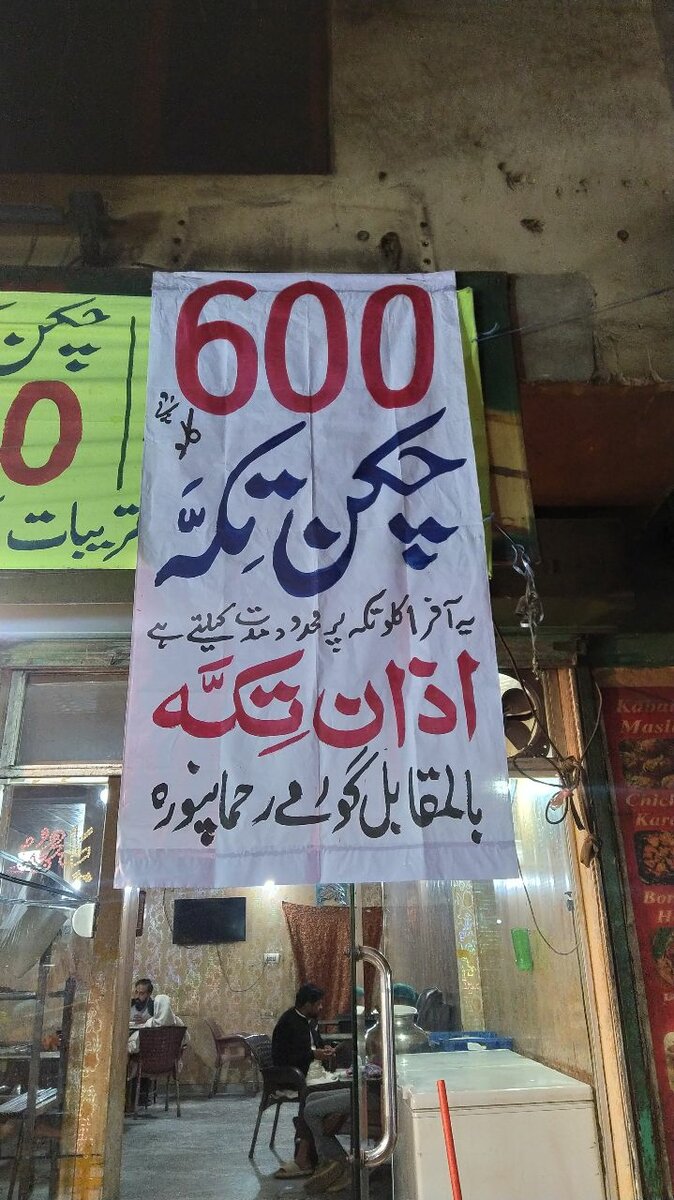 600
کلو
چکن تکہّ
یہ آفر 1 کلو تکہ پر محدود مدت کیلئے ہے
اذان تِکہَّ
بالمقابل گورمے رحمانپورہ
چکن
0
تقریبات
Chic
Kara
Bon
H